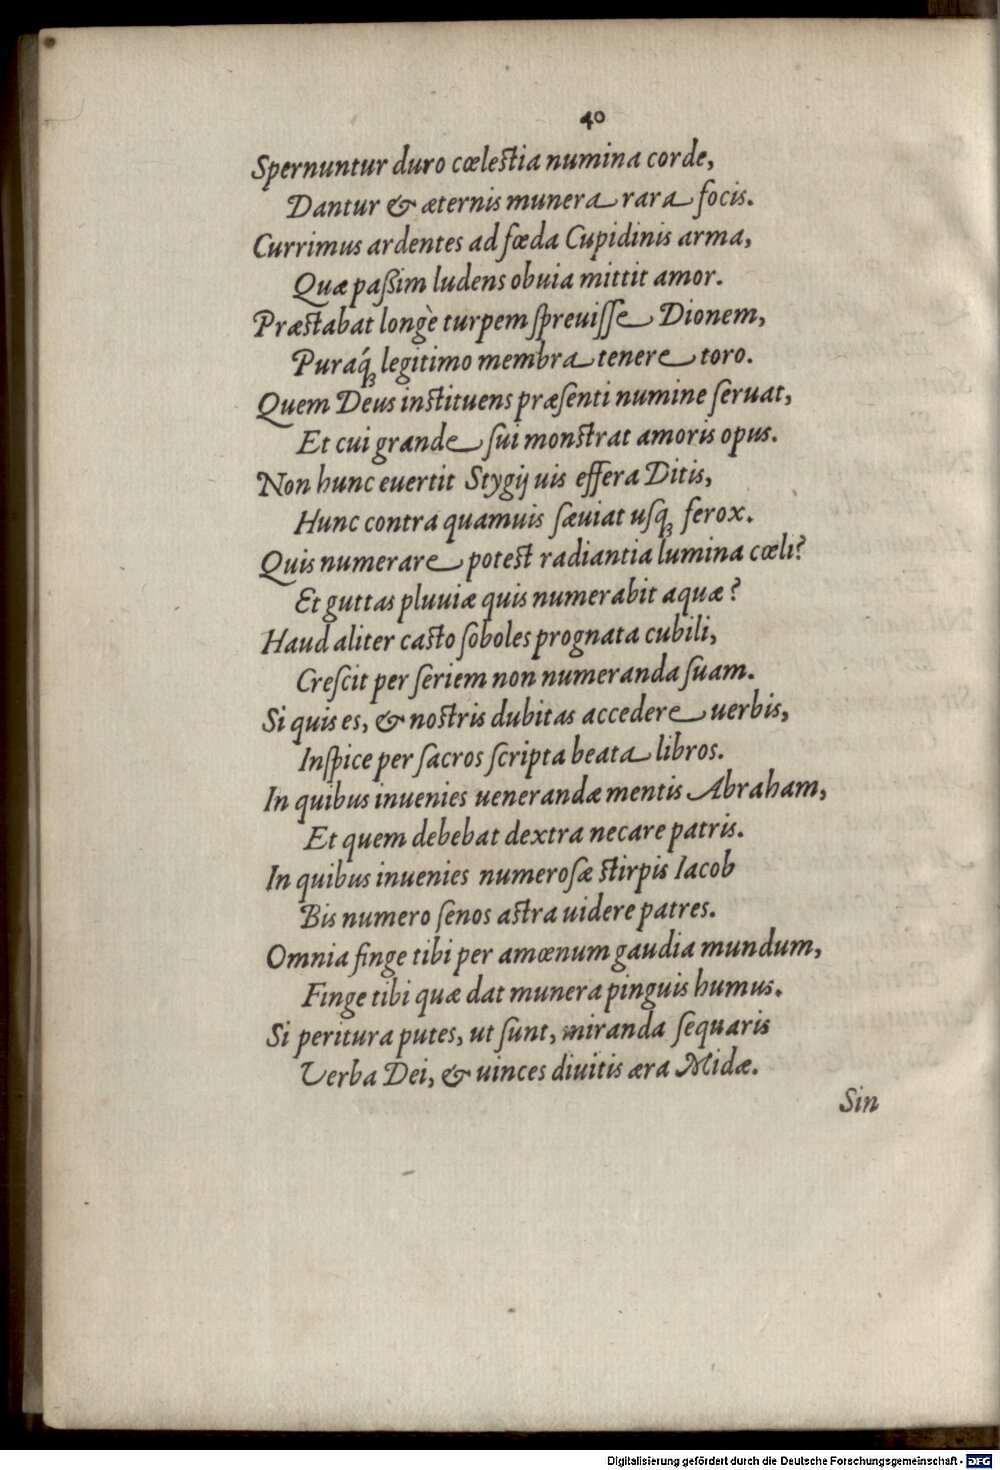 40
Spernuntur duro cœlestia numina corde,
Dantur & æternis munera rara focis.
Currimus ardentes ad fœda Cupidinis arma,
Quæ paßim ludens obuia mittit amor.
Præstabat longè turpem spreuiſſe Dionem,
Puraq́ꝫ legitimo membra tenere toro.
Quem Deus instituens præſenti numine ſeruat,
Et cui grande ſui monstrat amoris opus.
Non hunc euertit Stygij uis effera Ditis,
Hunc contra quamuis ſæuiat uſqꝫ ferox.
Quis numerare potest radiantia lumina cœli?
Et guttas pluuiæ quis numerabit aquæ?
Haud aliter casto ſoboles prognata cubili,
Creſcit per ſeriem non numeranda ſuam.
Si quis es, & nostris dubitas accedere uerbis,
Inſpice per ſacros ſcripta beata libros.
In quibus inuenies uenerandæ mentis Abraham,
Et quem debebat dextra necare patris.
In quibus inuenies numeroſæ stirpis Iacob
Bis numero ſenos astra uidere patres.
Omnia finge tibi per amœnum gaudia mundum,
Finge tibi quæ dat munera pinguis humus.
Si peritura putes, ut ſunt, miranda ſequaris
Verba Dei, & uinces diuitis æra Midæ.
Sin
Digitalisierung gefördert durch die Deutsche Forschungsgemeinschaft - DFG